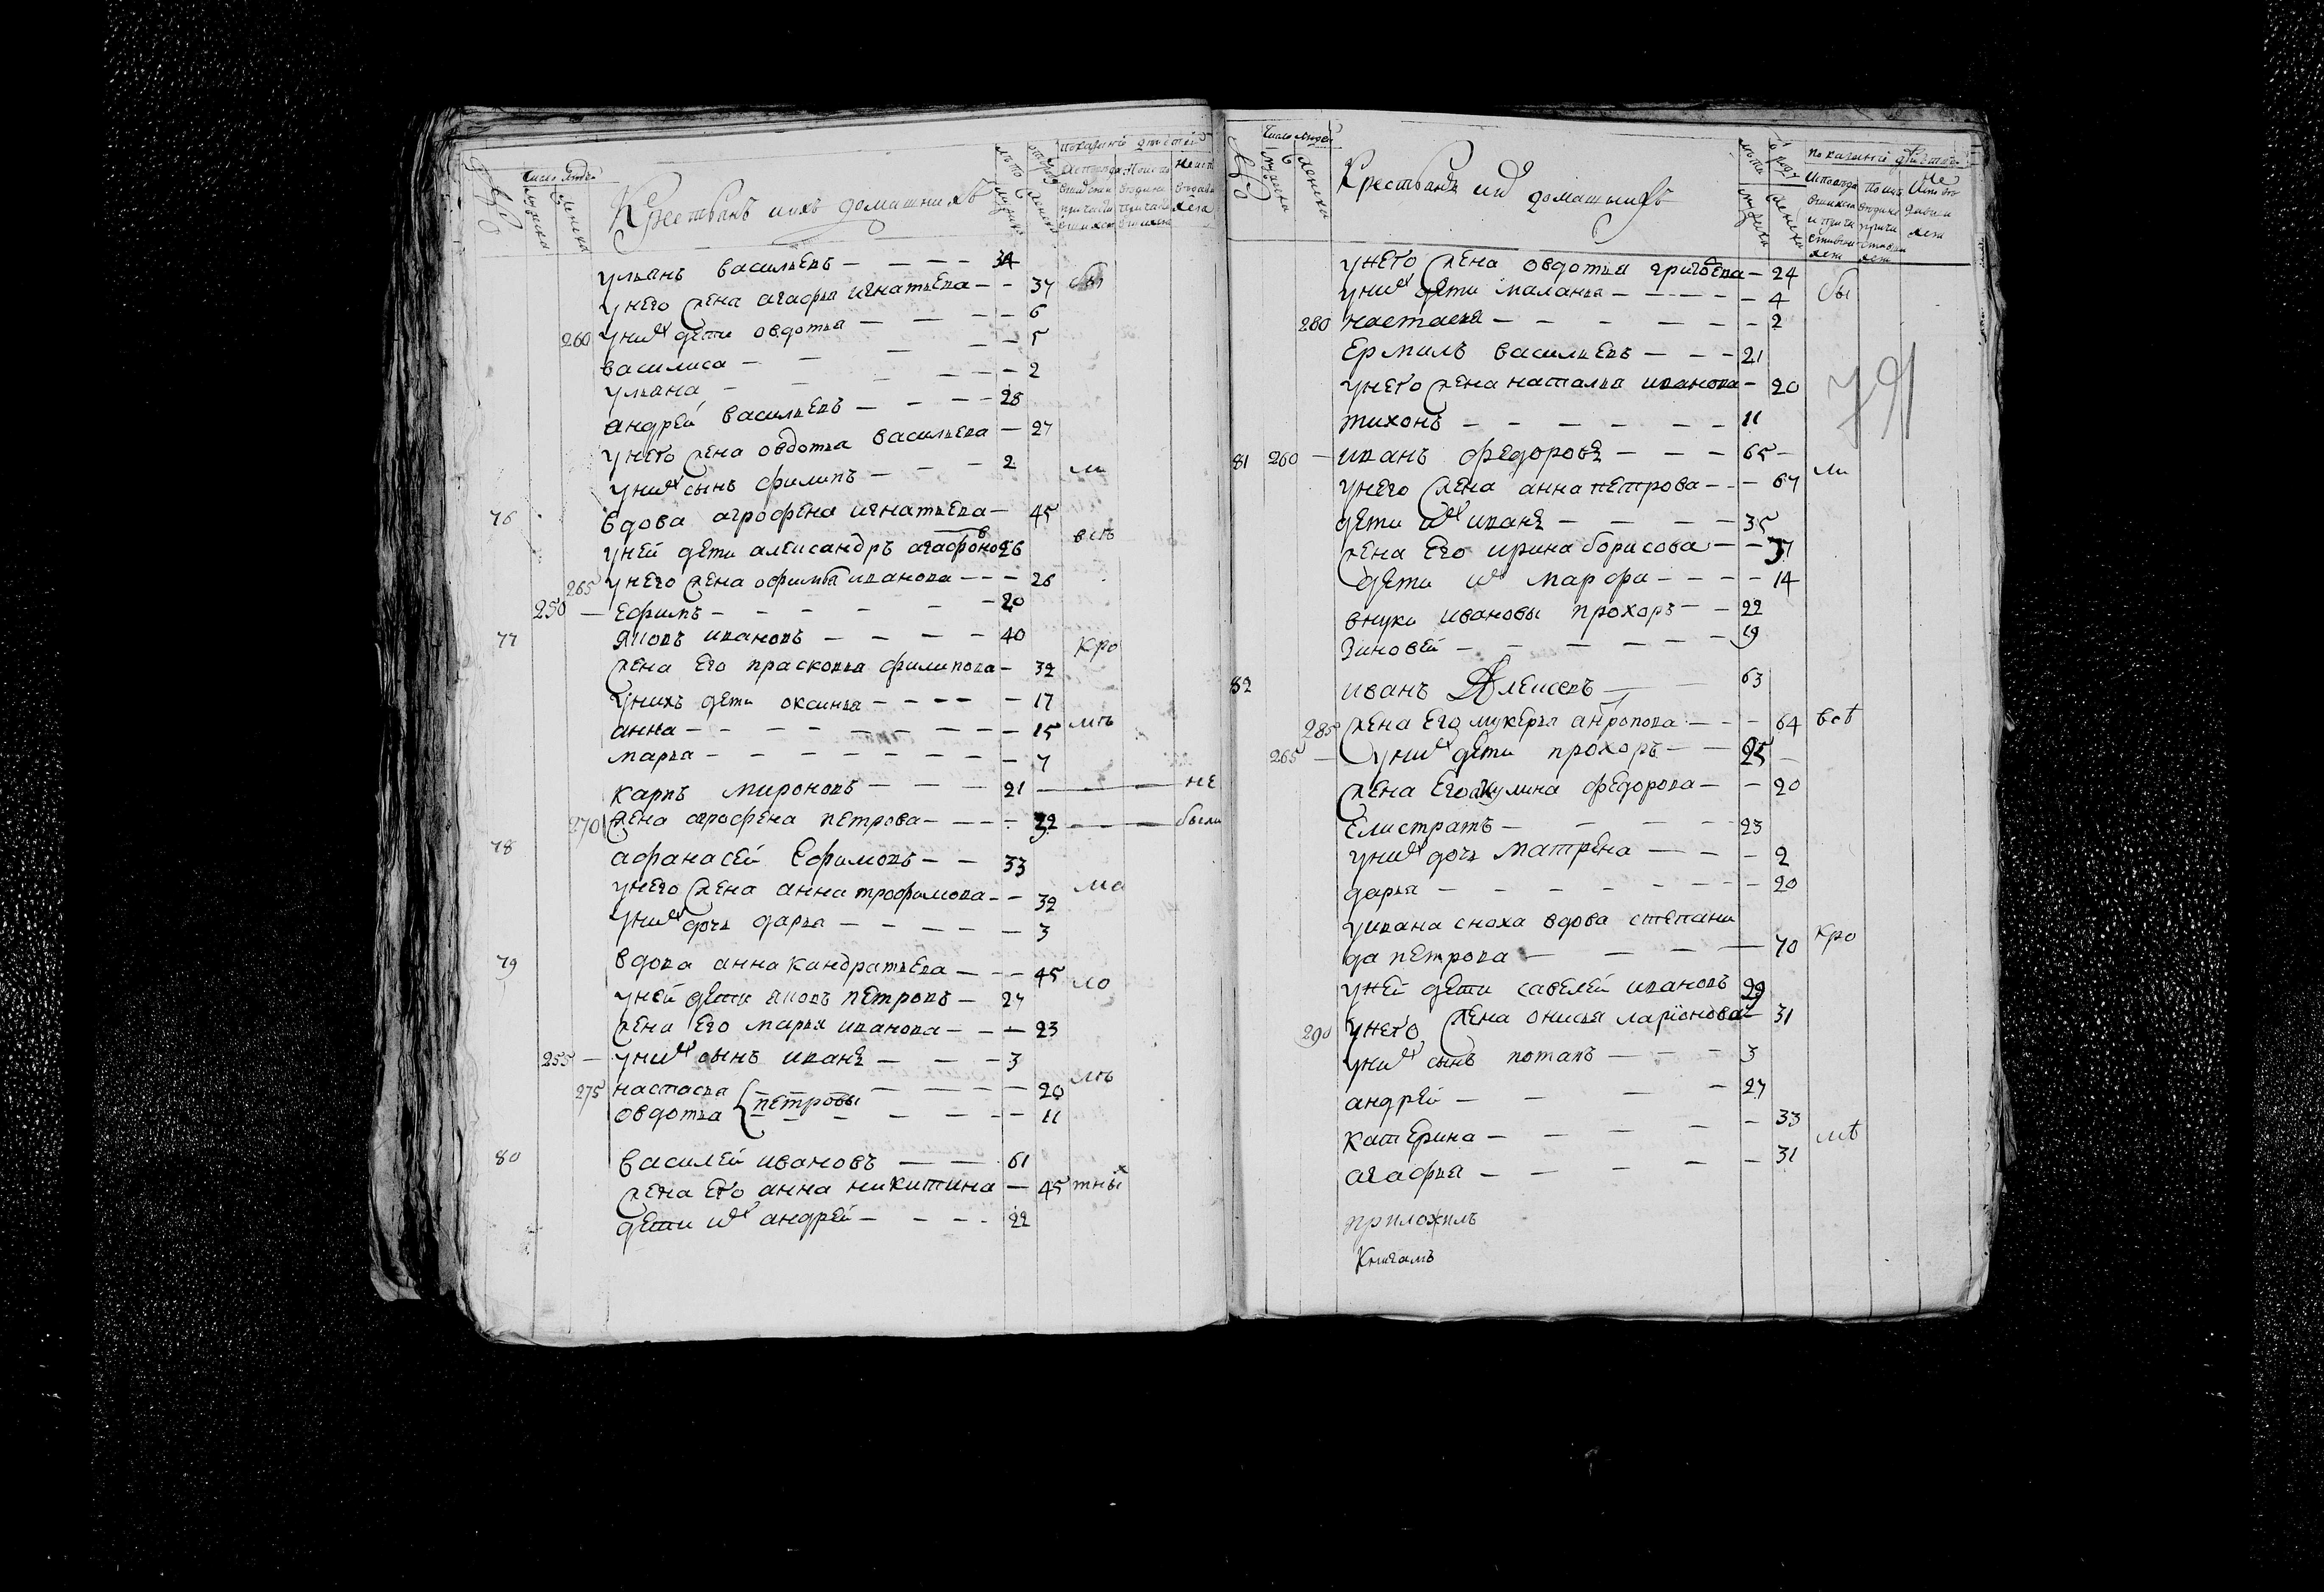 Число людей
мужска
женска
Крестьянъ ихъ домашнихъ
лѣта
мужск
женск
показаніе дѣйствій
ульянъ васильевъ — — — — 34
унего жена агафья игнатьева — — 37 бы
260 унихъ дети овдотья — — — — 6
василиса — — — — — 5
ульяна — — — — — 2
андрей васильевъ — — — — 28
унего жена овдотья васильева — 27
унихъ сынъ филипъ — — — 2 ли
76 вдова агрофена игнатьева — 45
уней дети александръ агафоновъ 26 всѣ
265 унего жена офимья иванова — — — 26
250 — Ефимъ — — — — — — 20
77 яковъ ивановъ — — — — 40
жена его прасковья филипова — 32 кро
унихъ дети оксинья — — — — — 17
анна — — — — — — — — 15 мѣ
марья — — — — — — — — 7
карпъ мироновъ — — — 21 — — — не
270 жена агрофена петрова — — — — 22 — — были
78 афанасей Ефимовъ — — 33
унего жена анна трофимова — — 32 ма
унихъ дочь дарья — — — — — 3
79 вдова анна кандратьева — — — 45
уней дети яковъ петровъ — 27 ло
жена его марья иванова — — — 23
255 — унихъ сынъ иванъ — — — 3
275 настасья — — — — — 20 лѣ
овдотья { петровы — — — — 11
80 василей ивановъ — — 61
жена его анна никитина — 45 тны
дети ихъ андрей — — — — 22
Число людей
мужска
женска
Крестьянъ ихъ домашнихъ
лѣта
мужска
женска
показаніе дѣйства
унего жена овдотья григоева — 24
унихъ дети маланья — — — — — 4 бы
280 настасья — — — — — — 2
Ермилъ васильевъ — — — 21
унего жена наталья иванова — 20
79
тихонъ — — — — — — 11
81 260 — иванъ федоровъ — — — 65 —
унего жена анна петрова — — — 67 ли
дети ихъ иванъ — — — — 35
жена его ирина борисова — — 37
дети ихъ марфа — — — — 14
внуки ивановы прохоръ — — 22
зиновей — — — — — — 19
82 иванъ Алексевъ — 63
285 жена его лукерья антропова — — — 64 всѣ
265 — унихъ дети прохоръ — — 25 —
жена его акулина федорова — — 20
Елистратъ — — — — 23
унихъ дочь матрена — — — 2
дарья — — — — — — — 20
уивана сноха вдова степани
да петрова — — — — 70 кро
уней дети савелей ивановъ 29
290 унего жена онисья ларіонова — 31
унихъ сынъ потапъ — — — 3
андрей — — — — 27
катерина — — — — — 33
агафья — — — — — 31 мѣ
приложилъ
Книгамъ